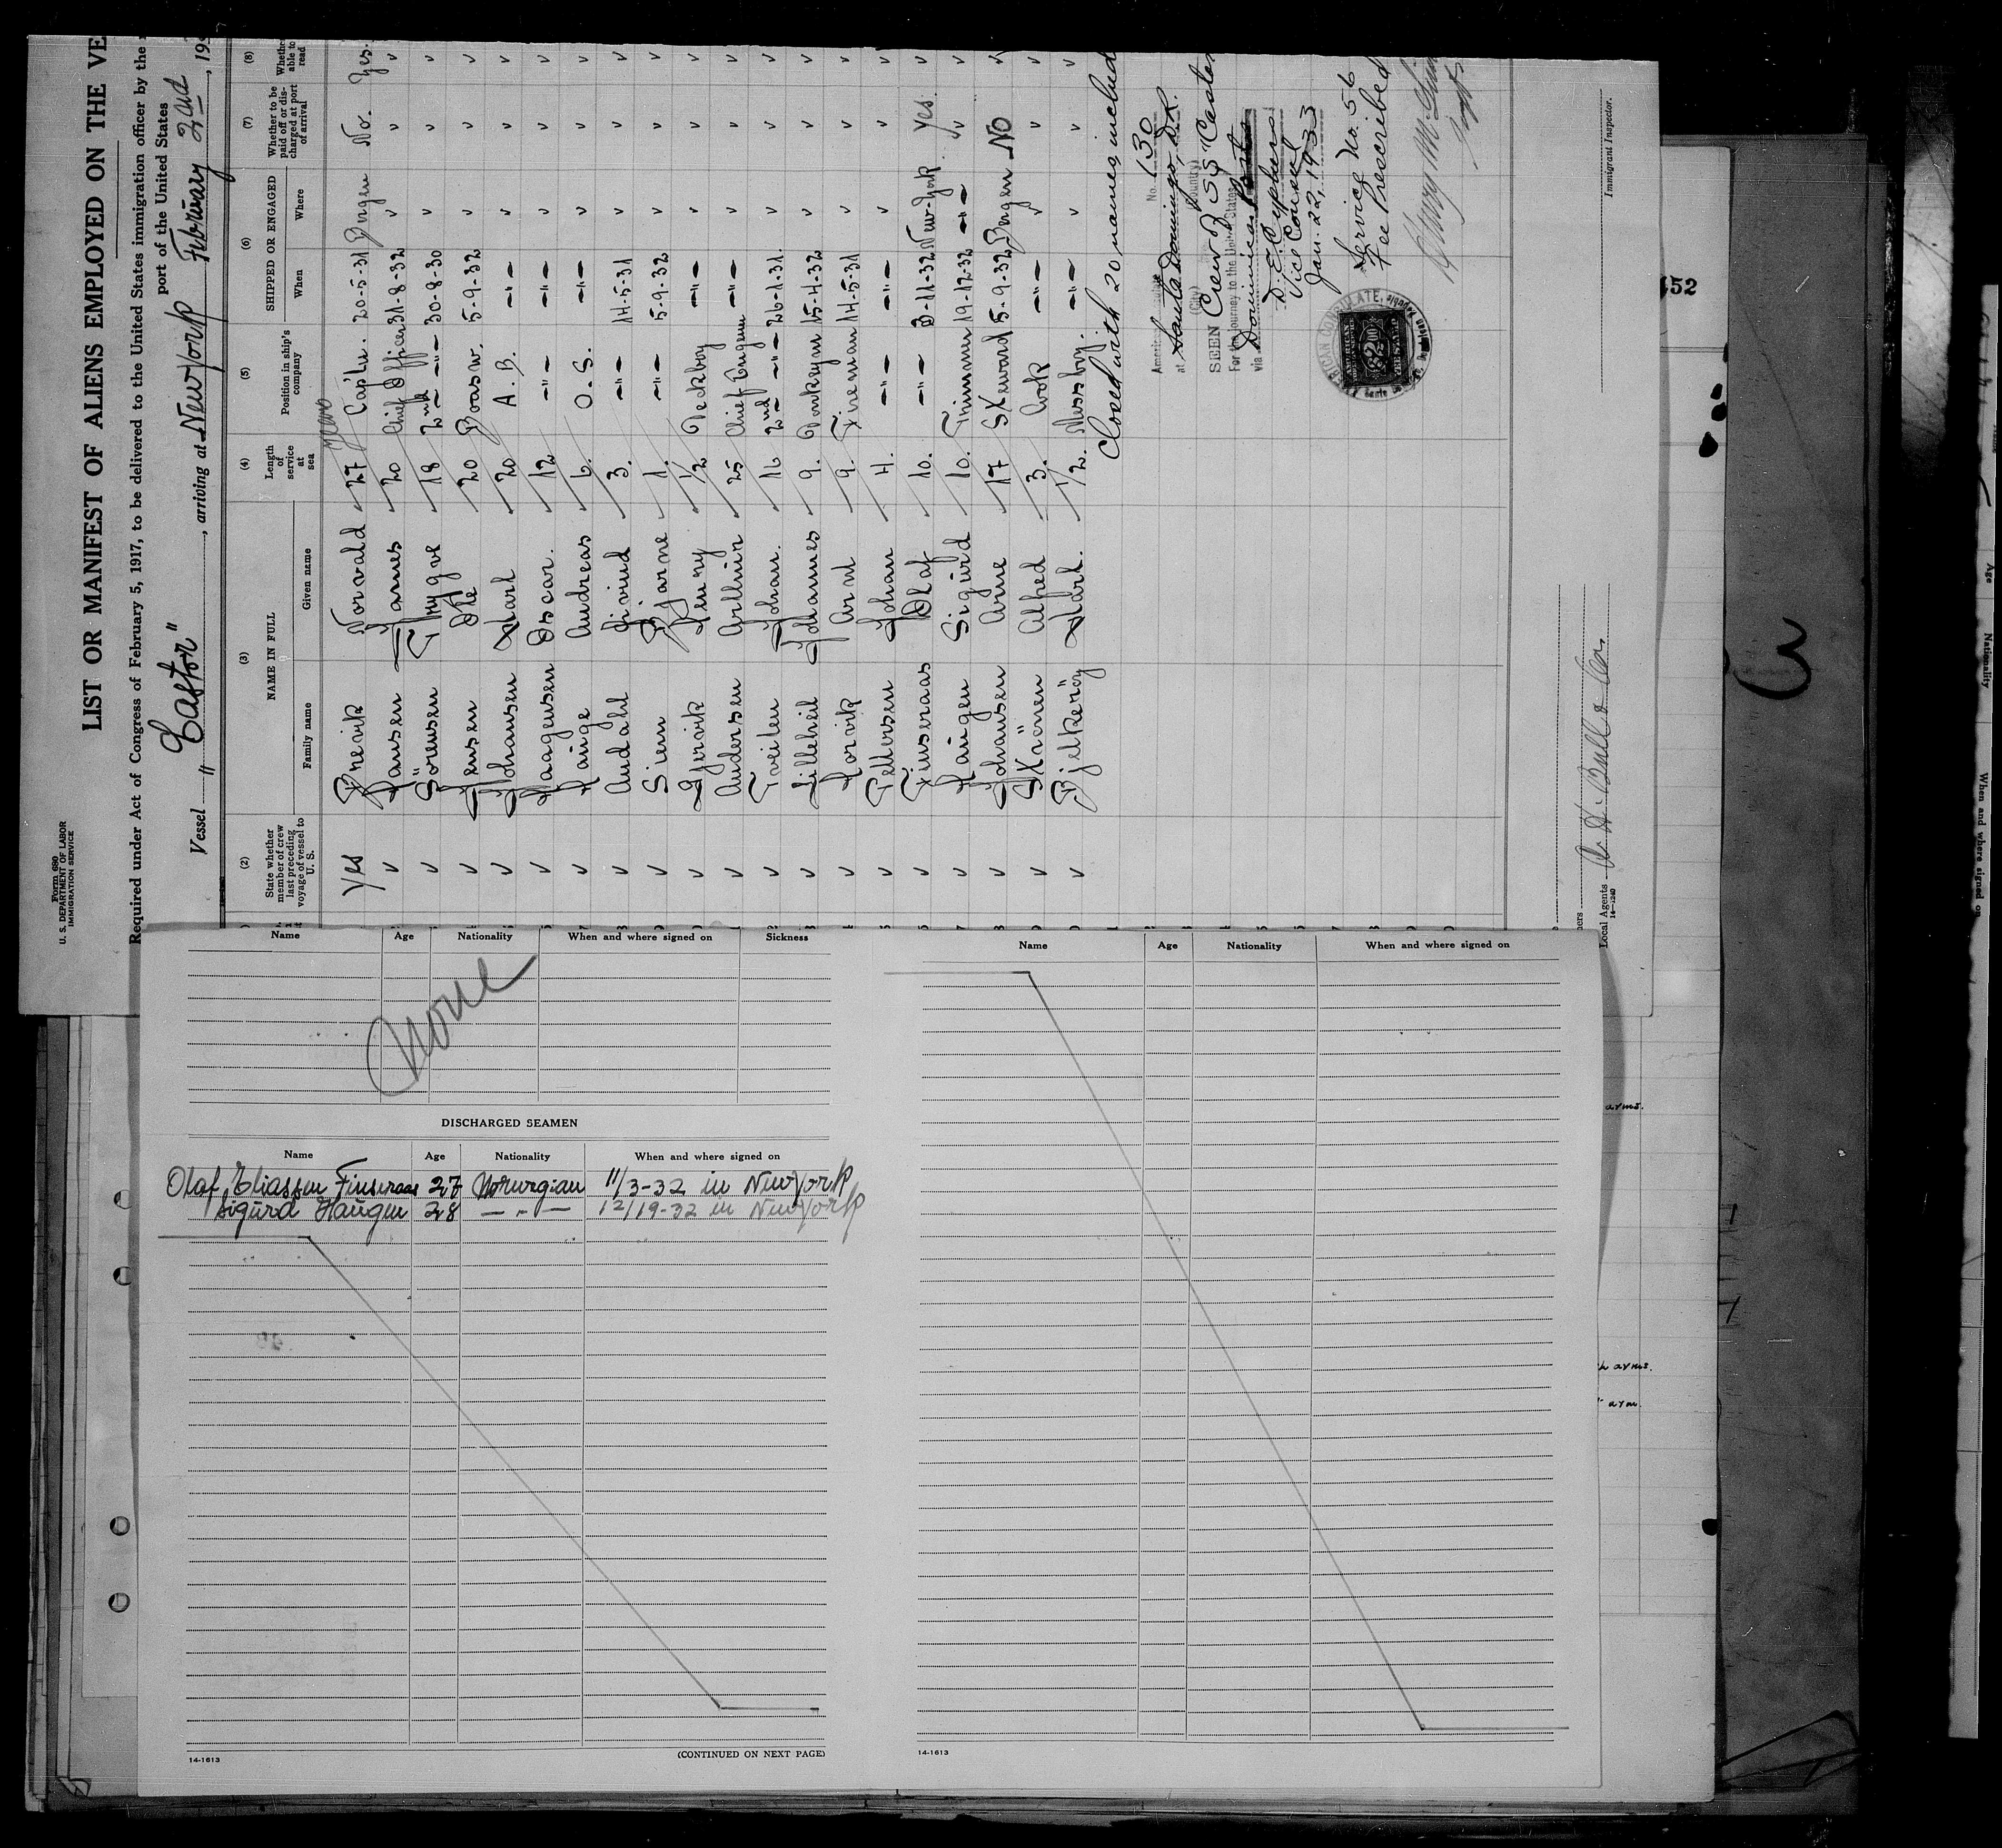 Form 680
U. S. DEPARTMENT OF LABOR
IMMIGRATION SERVICE
LIST OR MANIFEST OF ALIENS EMPLOYED ON THE VE
Required under Act of Congress of February 5, 1917, to be delivered to the United States immigration officer by the
port of the United States
Vessel "Castor", arriving at New York February 2nd, 193
(2) (3) (4) (5) (6) (7) (8)
State whether member of crew last preceding voyage of vessel to U. S.
NAME IN FULL
Family name Given name
Length of service at sea
Position in ship's company
SHIPPED OR ENGAGED
When Where
Whether to be paid off or discharged at port of arrival
Whether able to read
years
Yes Brevik Norvald 27 Capt'n. 20-5-31 Bergen No. Yes.
v Hansen James 20 Chief Officer 31-8-32 v v v
v Sörensen Thrygve 18 2nd -"- 30-8-30 v v v
v Jensen Ole 20 Boasw. 5-9-32 v v v
v Johansen Karl 20 A. B. -"- v v v
v Haagensen Oscar. 12 -"- -"- v v v
v Hauge Andreas 6. O. S. -"- v v v
v Aadahl Eivind 3. -"- 14-5-31 v v v
v Siem Bjarne 1. -"- 5-9-32 v v v
v Gjervik Henry 1/2 Deckboy -"- v v v
v Andersen Arthur 25 Chief Engineer -"- v v v
v Tveiten Johan. 16 2nd -"- 26-1-31. v v v
v Lilleheil Johannes 9. Donkeym 15-4-32 v v v
v Arnt 9. Fireman 14-5-31 v v v
v Tellevsen Johan 4. -"- -"- v v v
v Finseraas Olaf 10. -"- 3-11-32 New-York Yes. v
v Haugen Sigurd 10. Trimmer 19-12-32 -"- v v
v Johansen Arne 17 Steward 5-9-32 Bergen No v
v Alfred 3. Cook -"- v v v
v Bjelkeröy Karl. 1/2. Messboy. -"- v v v
Closed with 20 names includ
No. 130
American
at Santo Domingo, D. R.
(City) (Country)
SEEN Crew of SS "Castor
For the journey to the United States
via Dominican Ports
Vice Consul
Jan. 22, 1933
Service No. 56
Fee Prescribed
AMERICAN CONSULATE,
Immigrant Inspector.
Local Agents A. H. Bull & Co.
14-1240
452
3
Name Age Nationality When and where signed on Sickness
None
DISCHARGED SEAMEN
Name Age Nationality When and where signed on
Olaf Eliassen Finseraas 27 Norwegian 11/3-32 in New York
Sigurd Haugen 28 -"- 12/19-32 in New York
14-1613
(CONTINUED ON NEXT PAGE)
Name Age Nationality When and where signed on
14-1613
arms.
arms.
arm.
Age
Nationality
When and where signed on